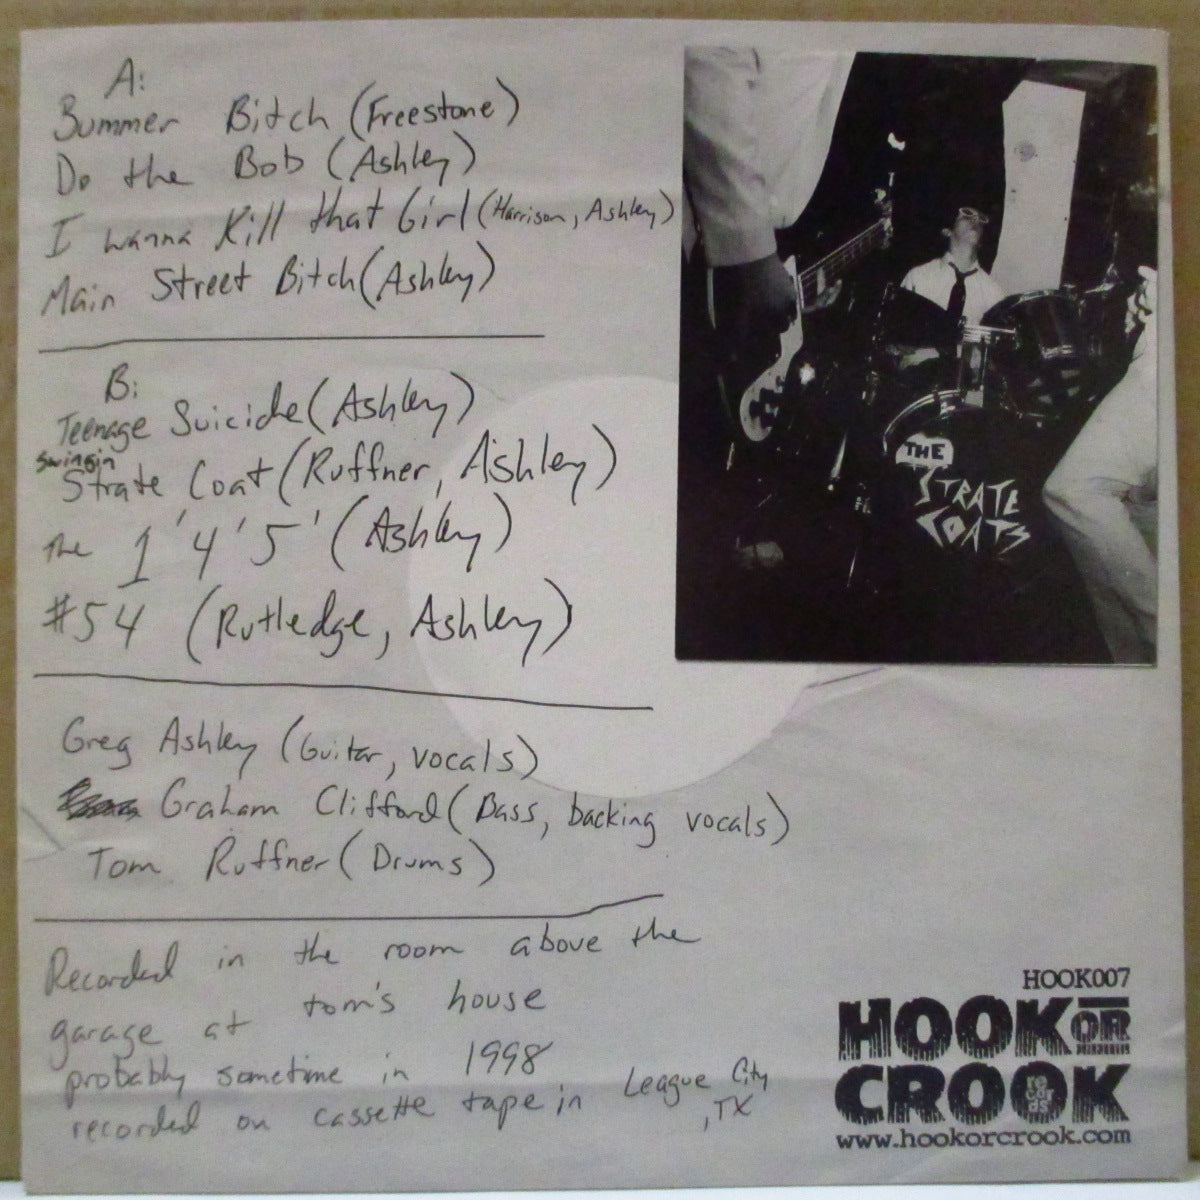 A:
Bummer Bitch (Freestone)
Do the Bob (Ashley)
I wanna Kill that Girl (Harrison, Ashley)
Main Street Bitch (Ashley)
B:
Teenage Suicide (Ashley)
swingin
Strate Coat (Ruffner, Ashley)
the 1'4'5' (Ashley)
#54 (Rutledge, Ashley)
Greg Ashley (Guitar, vocals)
Graham Clifford (Bass, backing vocals)
Tom Ruffner (Drums)
Recorded in the room above the
garage at tom's house
probably sometime in 1998
recorded on cassette tape in League City
, TX
THE
STRATE
COATS
HOOK007
HOOK OR
CROOK
records
www.hookorcrook.com